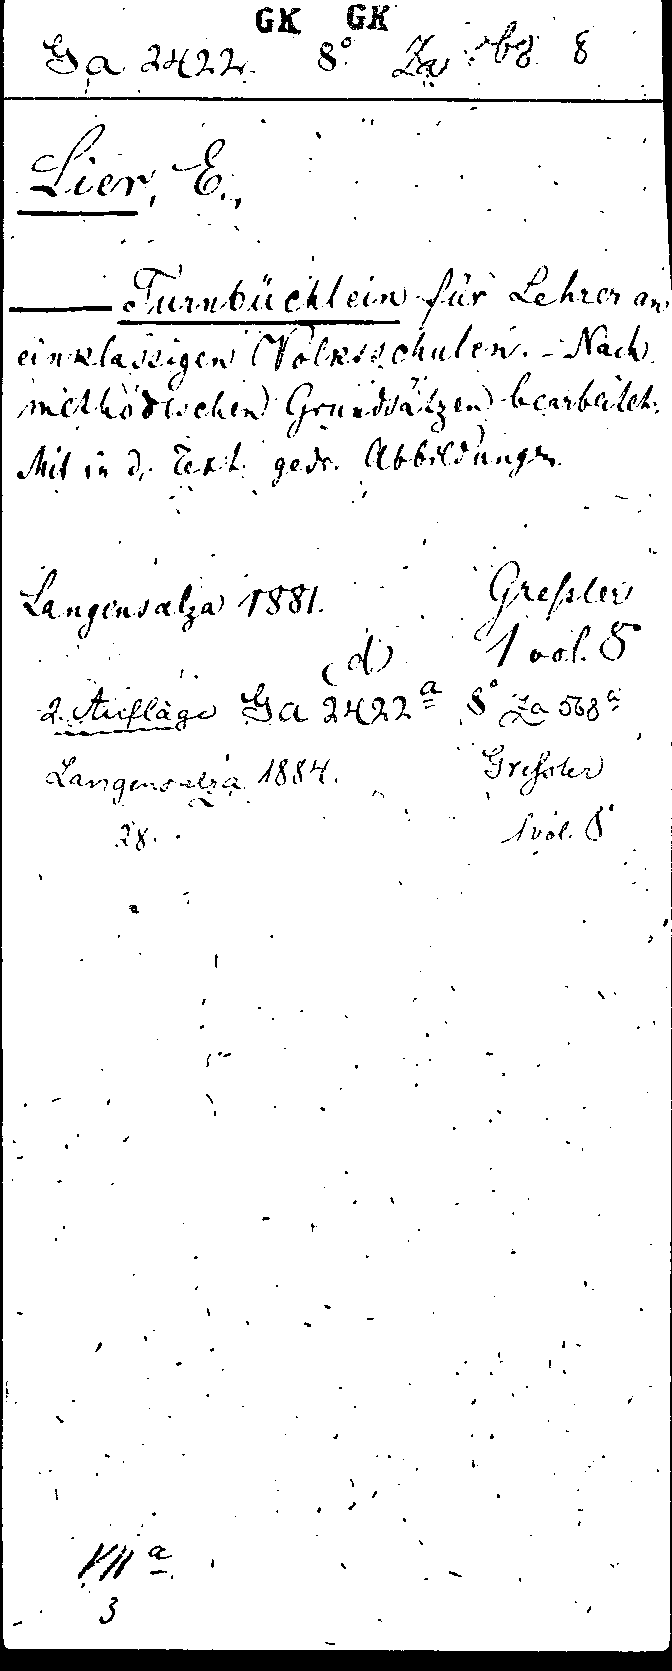 GK GK
Ga 2422. 8° Za 568 8
Lier, E.,
—— Turnbüchlein für Lehrer an
einklassigen Volksschulen. - Nach
methodischen Grundsätzen bearbeitet.
Mit in d. Text gedr. Abbildungen.
Langensalza 1881. Greßler
(d) 1 vol. 8°
2. Auflage Ga 2422a 8° Za 568a
Langensalza 1884. Greßler
28. 1 vol. 8°
VII a
3